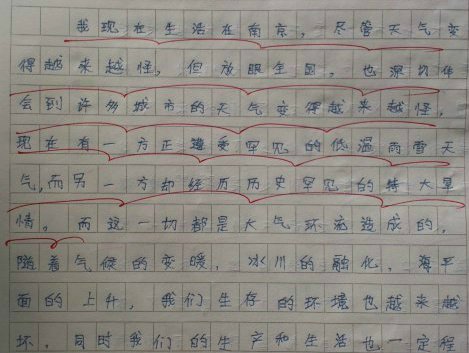 我现在生活在南京，尽管天气变
得越来越怪，但放眼全国，也深切体
会到许多城市的天气变得越来越怪，
现在有一方正遭受罕见的低温雨雪天
气，而另一方却经历历史罕见的特大旱
情。而这一切都是大气环流造成的，
随着气候的变暖，冰川的融化，海平
面的上升，我们生存的环境也越来越
坏，同时我们的生产和生活也一定程